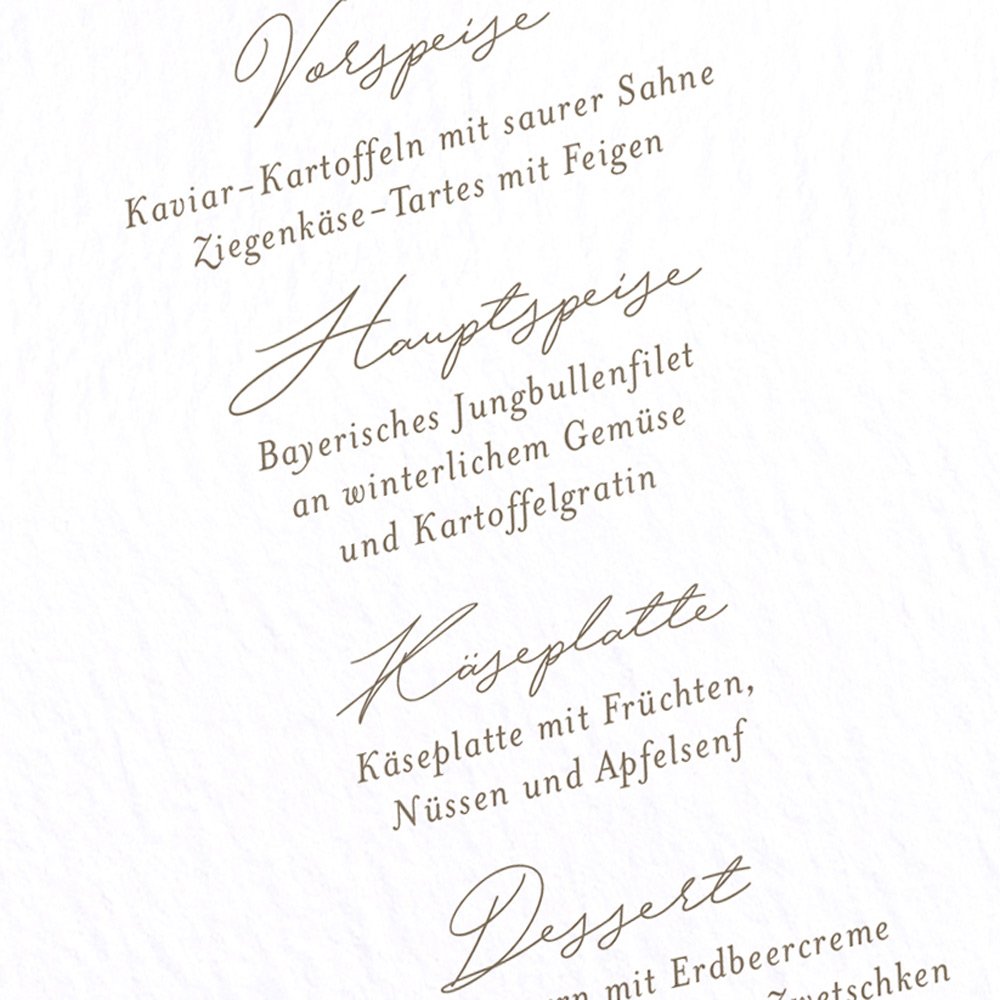 Vorspeise
Kaviar-Kartoffeln mit saurer Sahne
Ziegenkäse-Tartes mit Feigen
Hauptspeise
Bayerisches Jungbullenfilet
an winterlichem Gemüse
und Kartoffelgratin
Käseplatte
Käseplatte mit Früchten,
Nüssen und Apfelsenf
Dessert
mit Erdbeercreme
Zwetschken